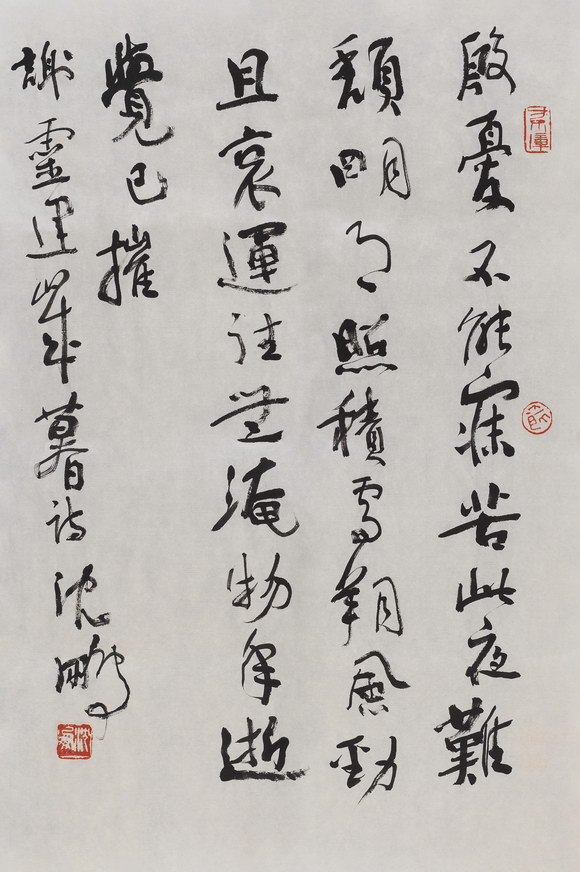 殷憂不能寐苦此夜難
頹明月照積雪朔風勁
且哀運往無淹物年逝
覺已摧
謝靈運歲暮詩沈鵬
沈鵬